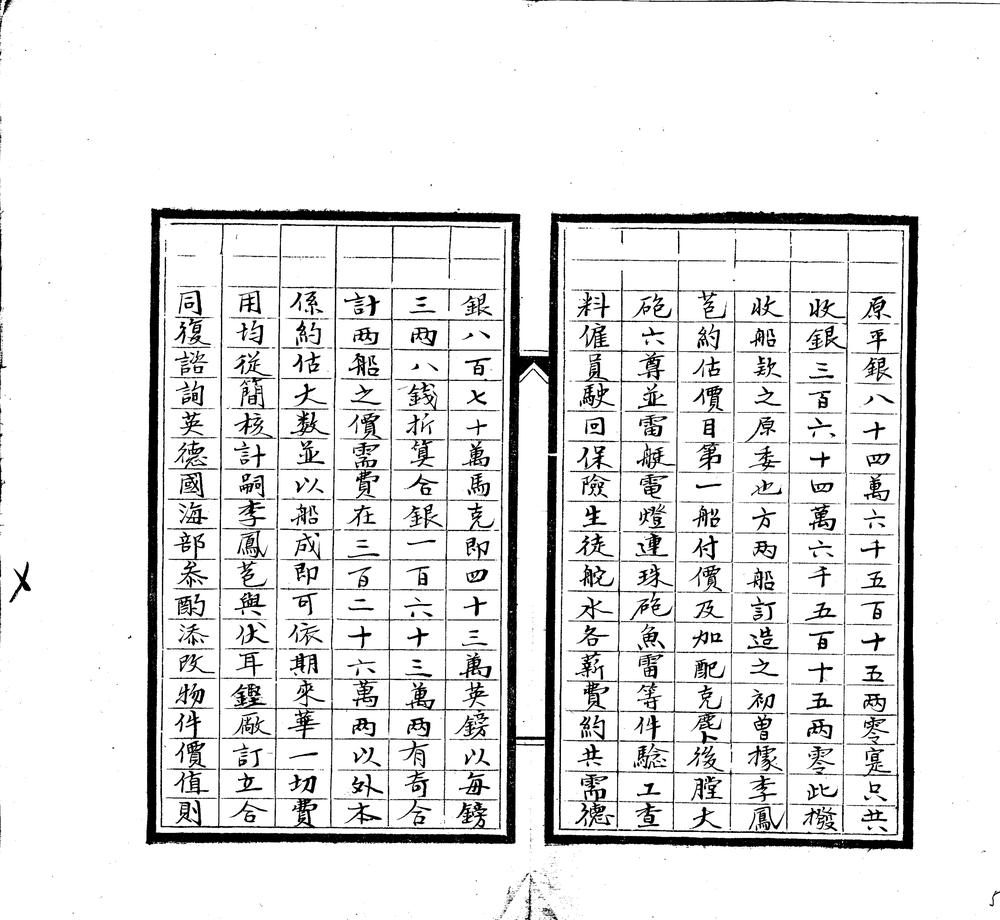 原平銀八十四萬六千五百十五两零寔只共
收銀三百六十四萬六千五百十五两零此撥
收船欵之原委也方两船訂造之初曾據李鳳
苞約估價目第一船付價及加配克鹿卜後膛大
砲六尊並雷艇電燈連珠砲魚雷等件驗工查
料僱員駛回保險生徒舵水各薪費約共需德
銀八百七十萬馬克即四十三萬英鎊以每鎊
三两八錢折算合銀一百六十三萬两有奇合
計两船之價需費在三百二十六萬两以外本
係約估大数並以船成即可依期來華一切費
用均從簡核計嗣李鳳苞與伏耳鏗廠訂立合
同復諮詢英德國海部叅酌添改物件價值則